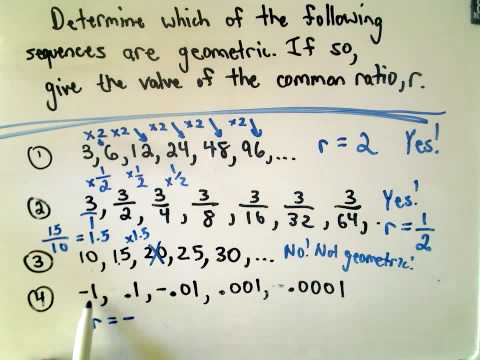 Determine which of the following
sequences are geometric. If so,
give the value of the common ratio, r.
×2 ×2 ×2 ×2 ×2
① 3, 6, 12, 24, 48, 96, ... r = 2 Yes!
×1/2 ×1/2 ×1/2
② 3/1, 3/2, 3/4, 3/8, 3/16, 3/32, 3/64, . r = 1/2 Yes!
15/10 = 1.5 ×1.5
③ 10, 15, 20, 25, 30, ... No! Not geometric!
④ -1, .1, -.01, .001, -.0001
r = -